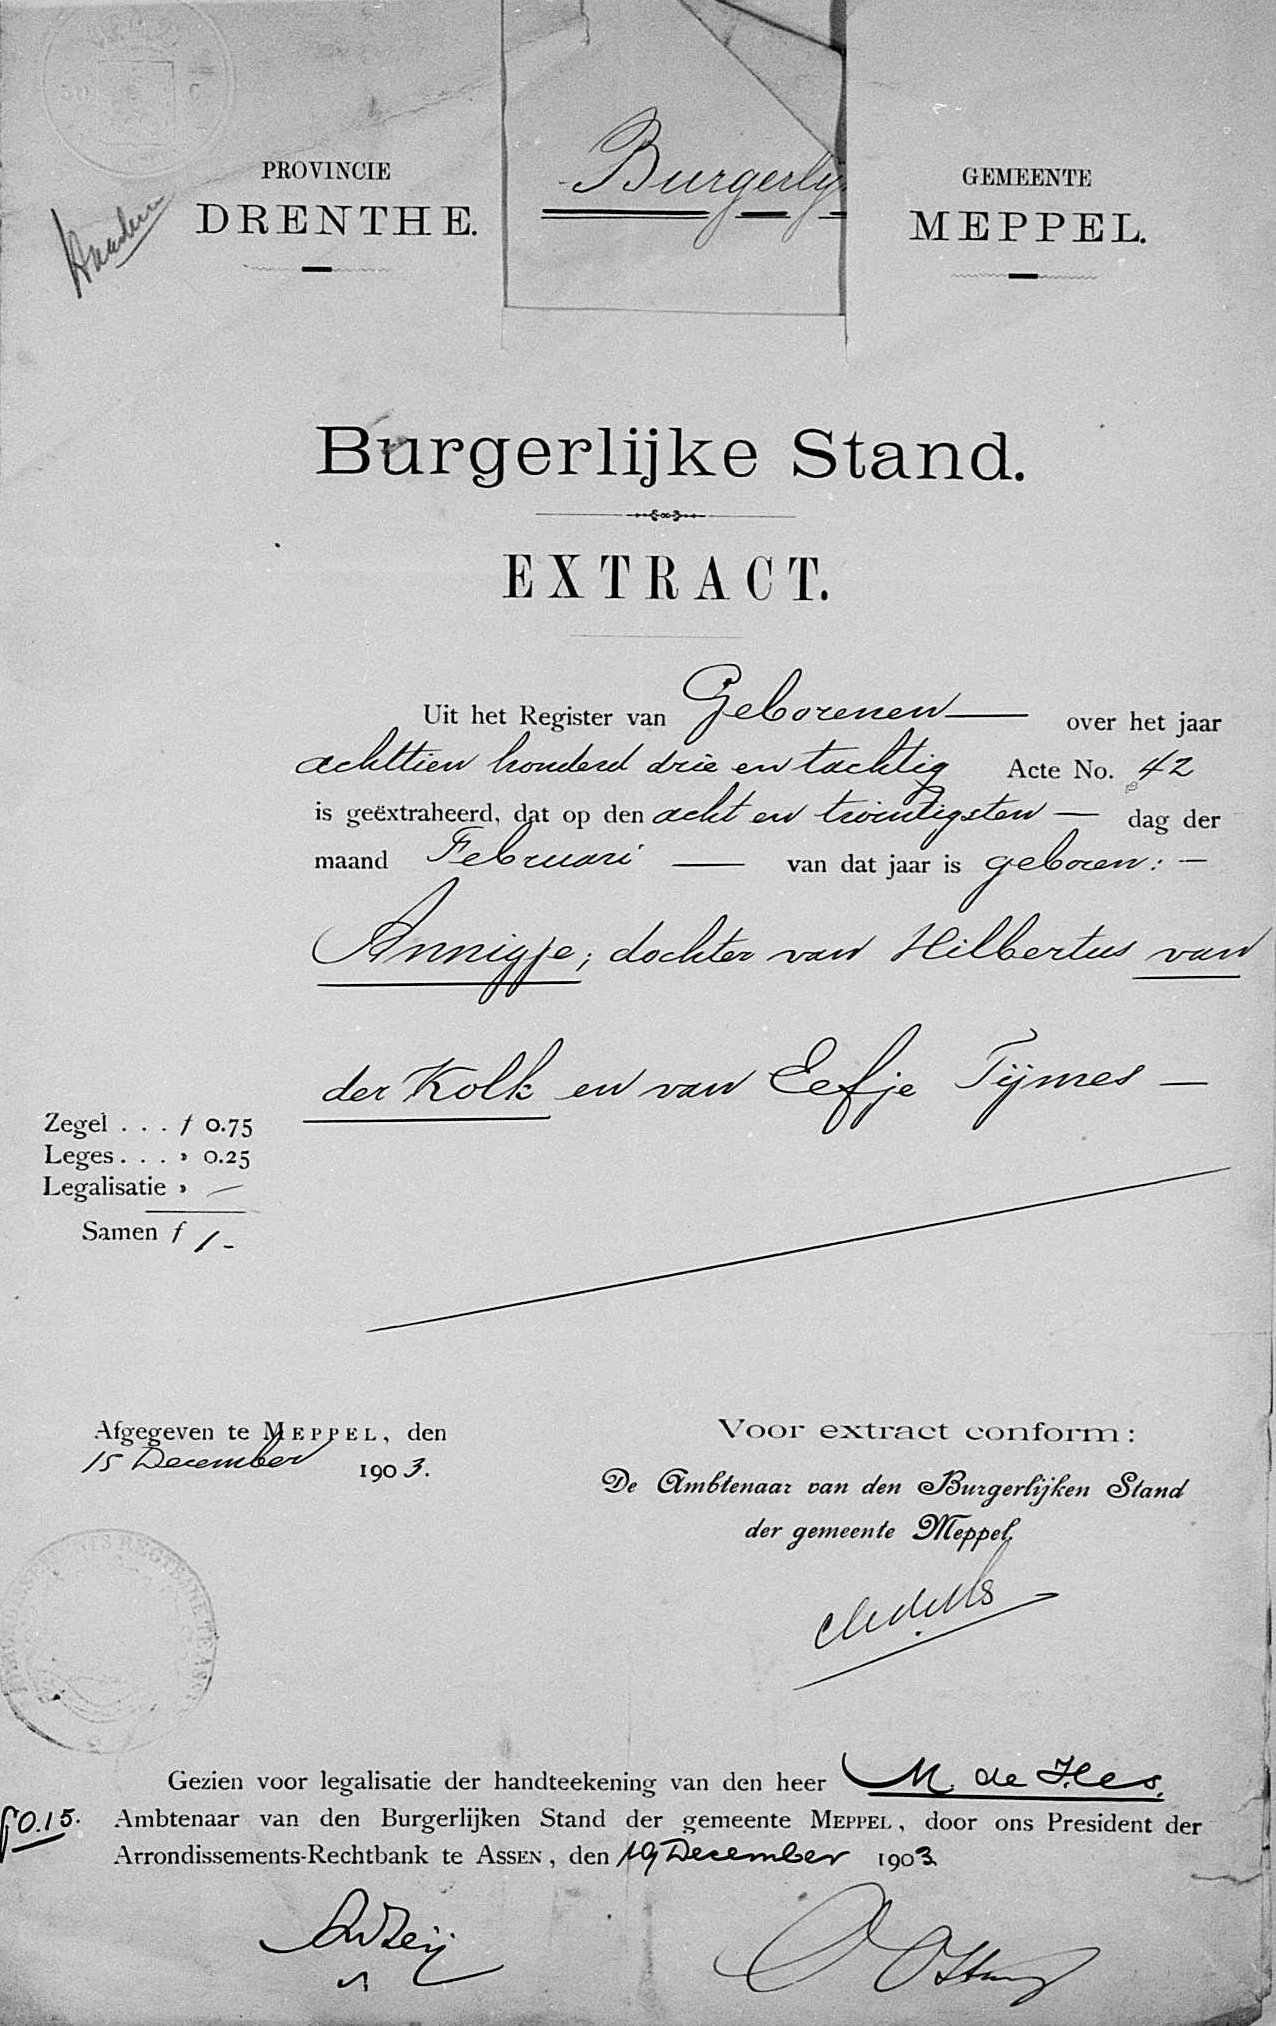 PROVINCIE
DRENTHE.
Burgerly
GEMEENTE
MEPPEL.
Burgerlijke Stand.
EXTRACT.
Uit het Register van Geborenen over het jaar
achttien honderd drie en tachtig Acte No. 42
is geëxtraheerd, dat op den acht en twintigsten dag der
maand Februari van dat jaar is geboren:
Annigje; dochter van Hilbertus van
der Kolk en van Eefje Tijmes
Zegel . . . f 0.75
Leges . . . " 0.25
Legalisatie " —
Samen f 1.-
Afgegeven te MEPPEL, den
15 December 1903.
Voor extract conform:
De Ambtenaar van den Burgerlijken Stand
der gemeente Meppel,
Gezien voor legalisatie der handteekening van den heer M. de Hes.
f 0.15. Ambtenaar van den Burgerlijken Stand der gemeente MEPPEL, door ons President der
Arrondissements-Rechtbank te ASSEN, den 19 December 1903